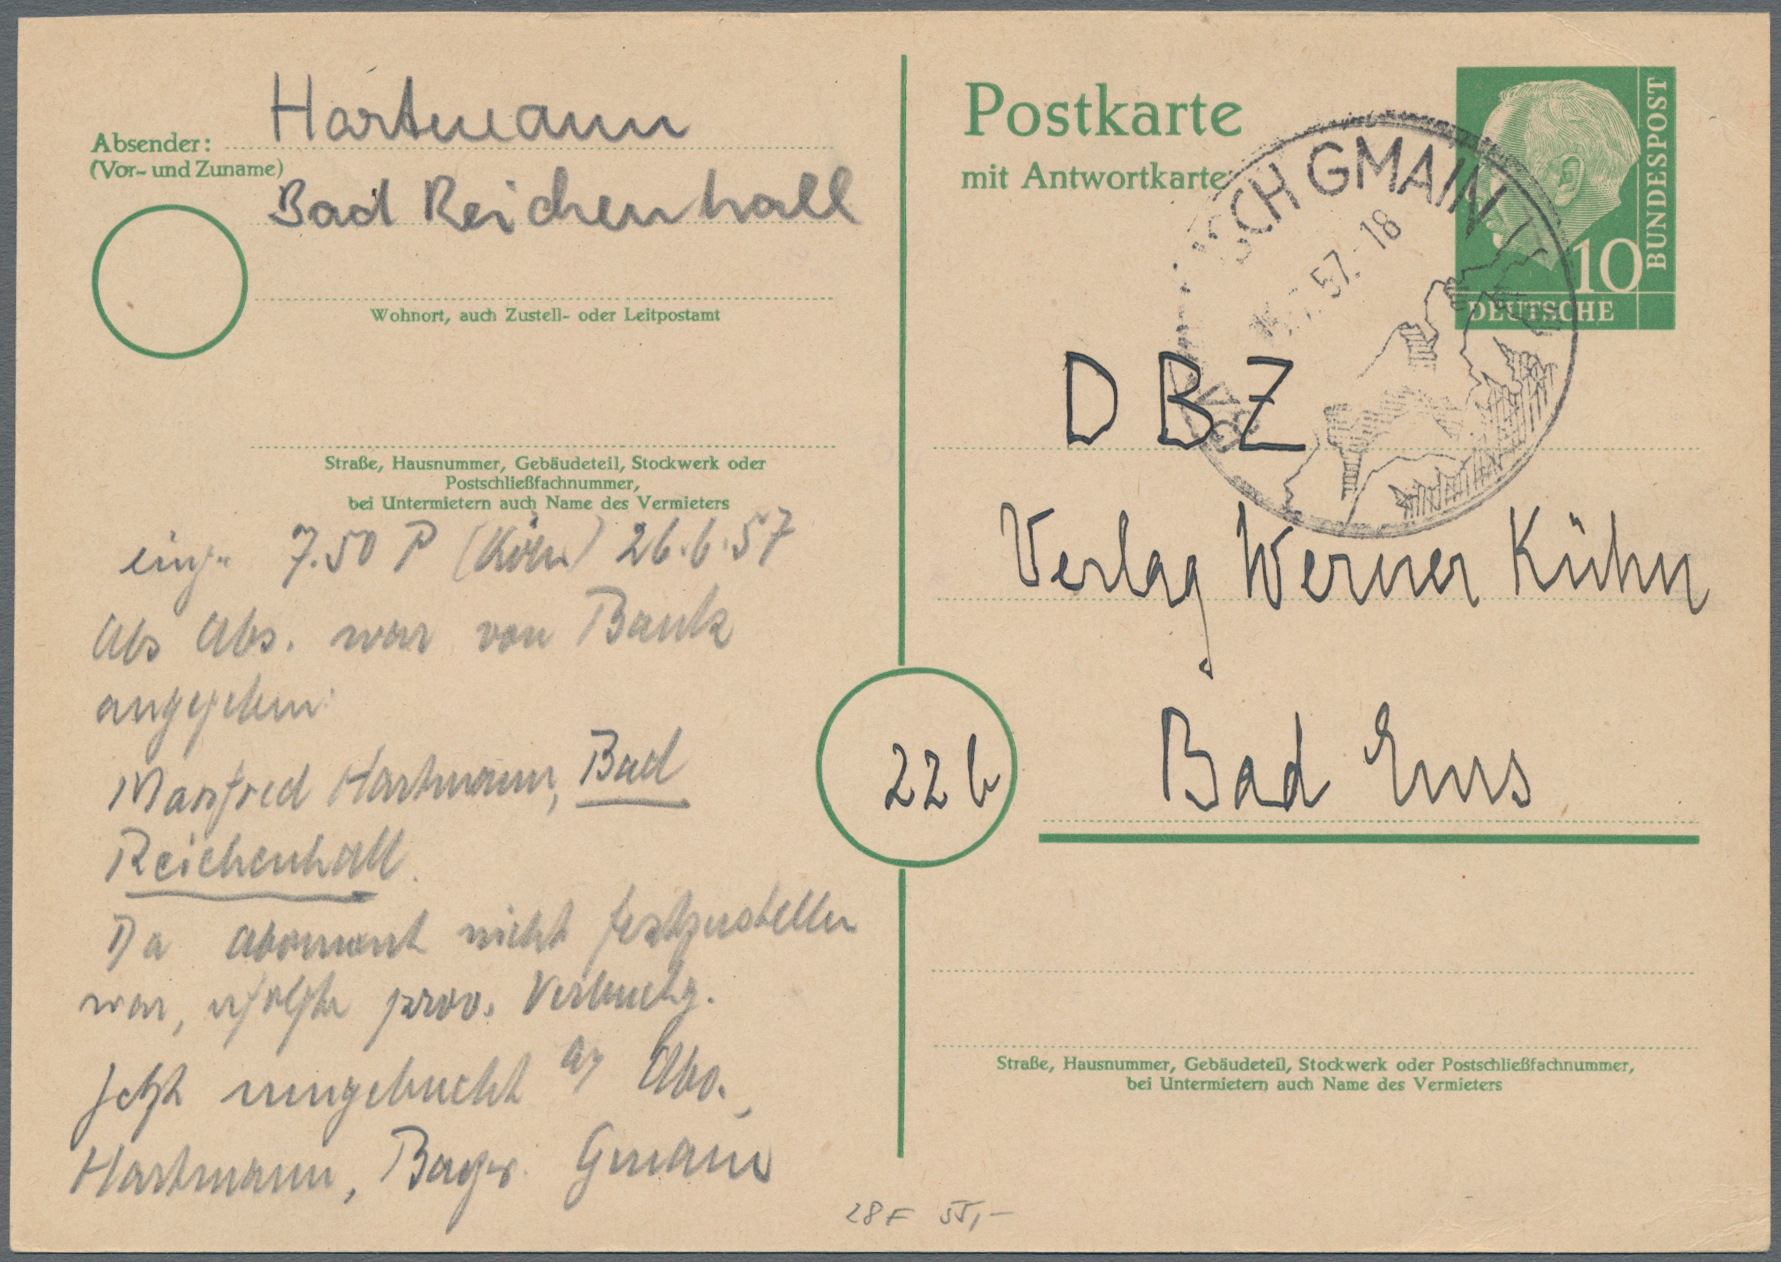 Hartmann
Absender:
(Vor- und Zuname)
Bad Reichenhall
Wohnort, auch Zustell- oder Leitpostamt
Straße, Hausnummer, Gebäudeteil, Stockwerk oder
Postschließfachnummer,
bei Untermietern auch Name des Vermieters
eing. 7.50 P (Köln) 26.6.57
Als Abs. war von Bank
angegeben:
Manfred Hartmann, Bad
Reichenhall.
Da abonnent nicht festzustellen
war, erfolgte prov. Verbuchg.
Jetzt umgebucht a/ Abo.,
Hartmann, Bayr. Gmain
28F 55,-
Postkarte
mit Antwortkarte
BUNDESPOST
10
DEUTSCHE
SCH GMAIN
57.-18
DBZ
Verlag Werner Kühn
22b
Bad Ems
Straße, Hausnummer, Gebäudeteil, Stockwerk oder Postschließfachnummer,
bei Untermietern auch Name des Vermieters